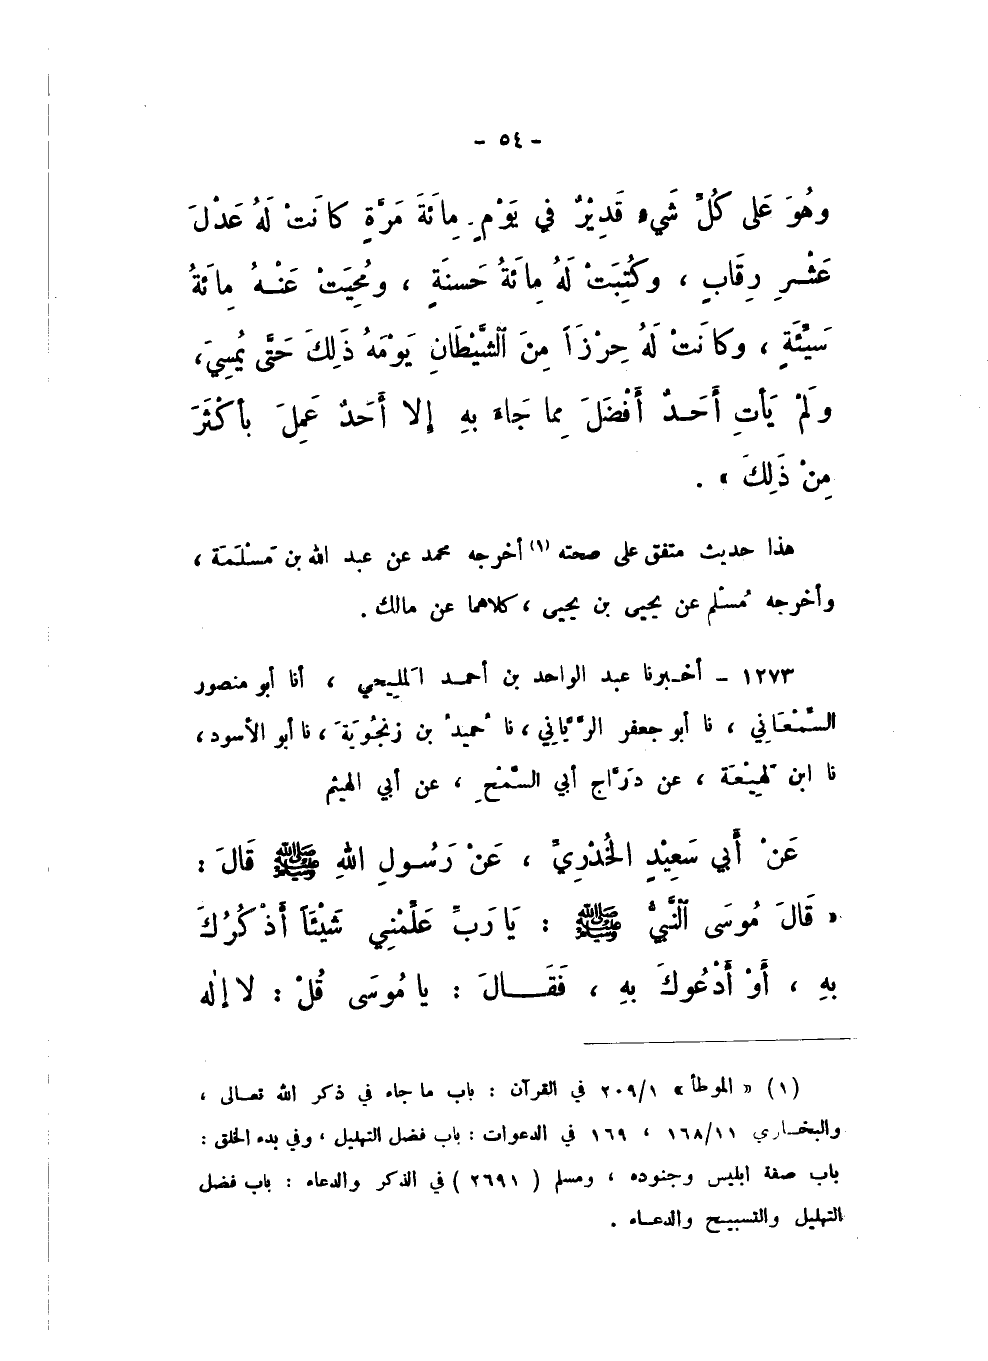 - ٥٤ -
وهُوَ عَلى كُلِّ شَيءٍ قَدِيْرٌ في يَوْمٍ مِائَةَ مَرَّةٍ كانَتْ لَهُ عَدْلَ
عَشْـرِ رِقَابٍ ، وكُتِبَتْ لَهُ مِائَةُ حَسنَةٍ ، ومُحِيَتْ عَنْـهُ مِائَةُ
سَيِّئَةٍ ، وكانَتْ لَهُ حِرْزَاً مِنَ ٱلشَّيْطَانِ يَوْمَهُ ذَلِكَ حَتَّى يُمسِيَ،
ولَمْ يَأتِ أَحَـدٌ أَفْضَلَ مِما جَاءَ بهِ إلا أَحَدٌ عَمِلَ بأكْثَرَ
مِنْ ذَلِكَ » .
هذا حديث متفق على صحته (١) أخرجه محمد عن عبد الله بن مَسْلَمَة ،
وأخرجه مُسْلم عن يحيى بن يحيى ، كلاهما عن مالك .
١٢٧٣ - أخـبرنا عبد الواحد بن أحمـد المَلِيحي ، أنا أبو منصور
السَّمْعَاني ، نا أبو جعفر الرَّيَّاني ، نا حُميدُ بن زنجُويَةَ ، نا أبو الأسود ،
نا ابن لَهِيْعَة ، عن دَرَّاج أبي السَّمْحِ ، عن أبي الهيثم
عَنْ أَبي سَعِيْدٍ الخُدْرِيِّ ، عَنْ رَسُـولِ اللهِ ﷺ قَالَ :
« قَالَ مُوسَى ٱلنَّبيُّ ﷺ : يَا رَبِّ عَلِّمْنِي شَيْئَاً أَذْكُرُكَ
بِهِ ، أَوْ أَدْعُوكَ بِهِ ، فَقَـــالَ : يا مُوسَى قُلْ : لا إلٰه
(١) « الموطأ » ٢٠٩/١ في القرآن : باب ما جاء في ذكر الله تعـالى ،
والبخـاري ١٦٨/١١ ، ١٦٩ في الدعوات : باب فضل التهليل ، وفي بدء الخلق :
باب صفة ابليس وجنوده ، ومسلم ( ٢٦٩١ ) في الذكر والدعاء : باب فضل
التهليل والتسبيـح والدعـاء .